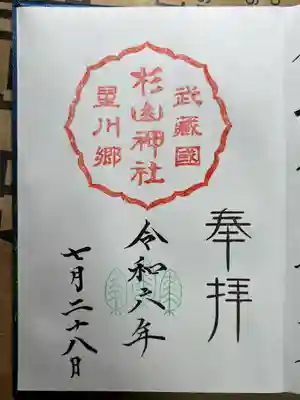 奉拝
武藏國
杉山神社
星川郷
令和六年
七月二十八日